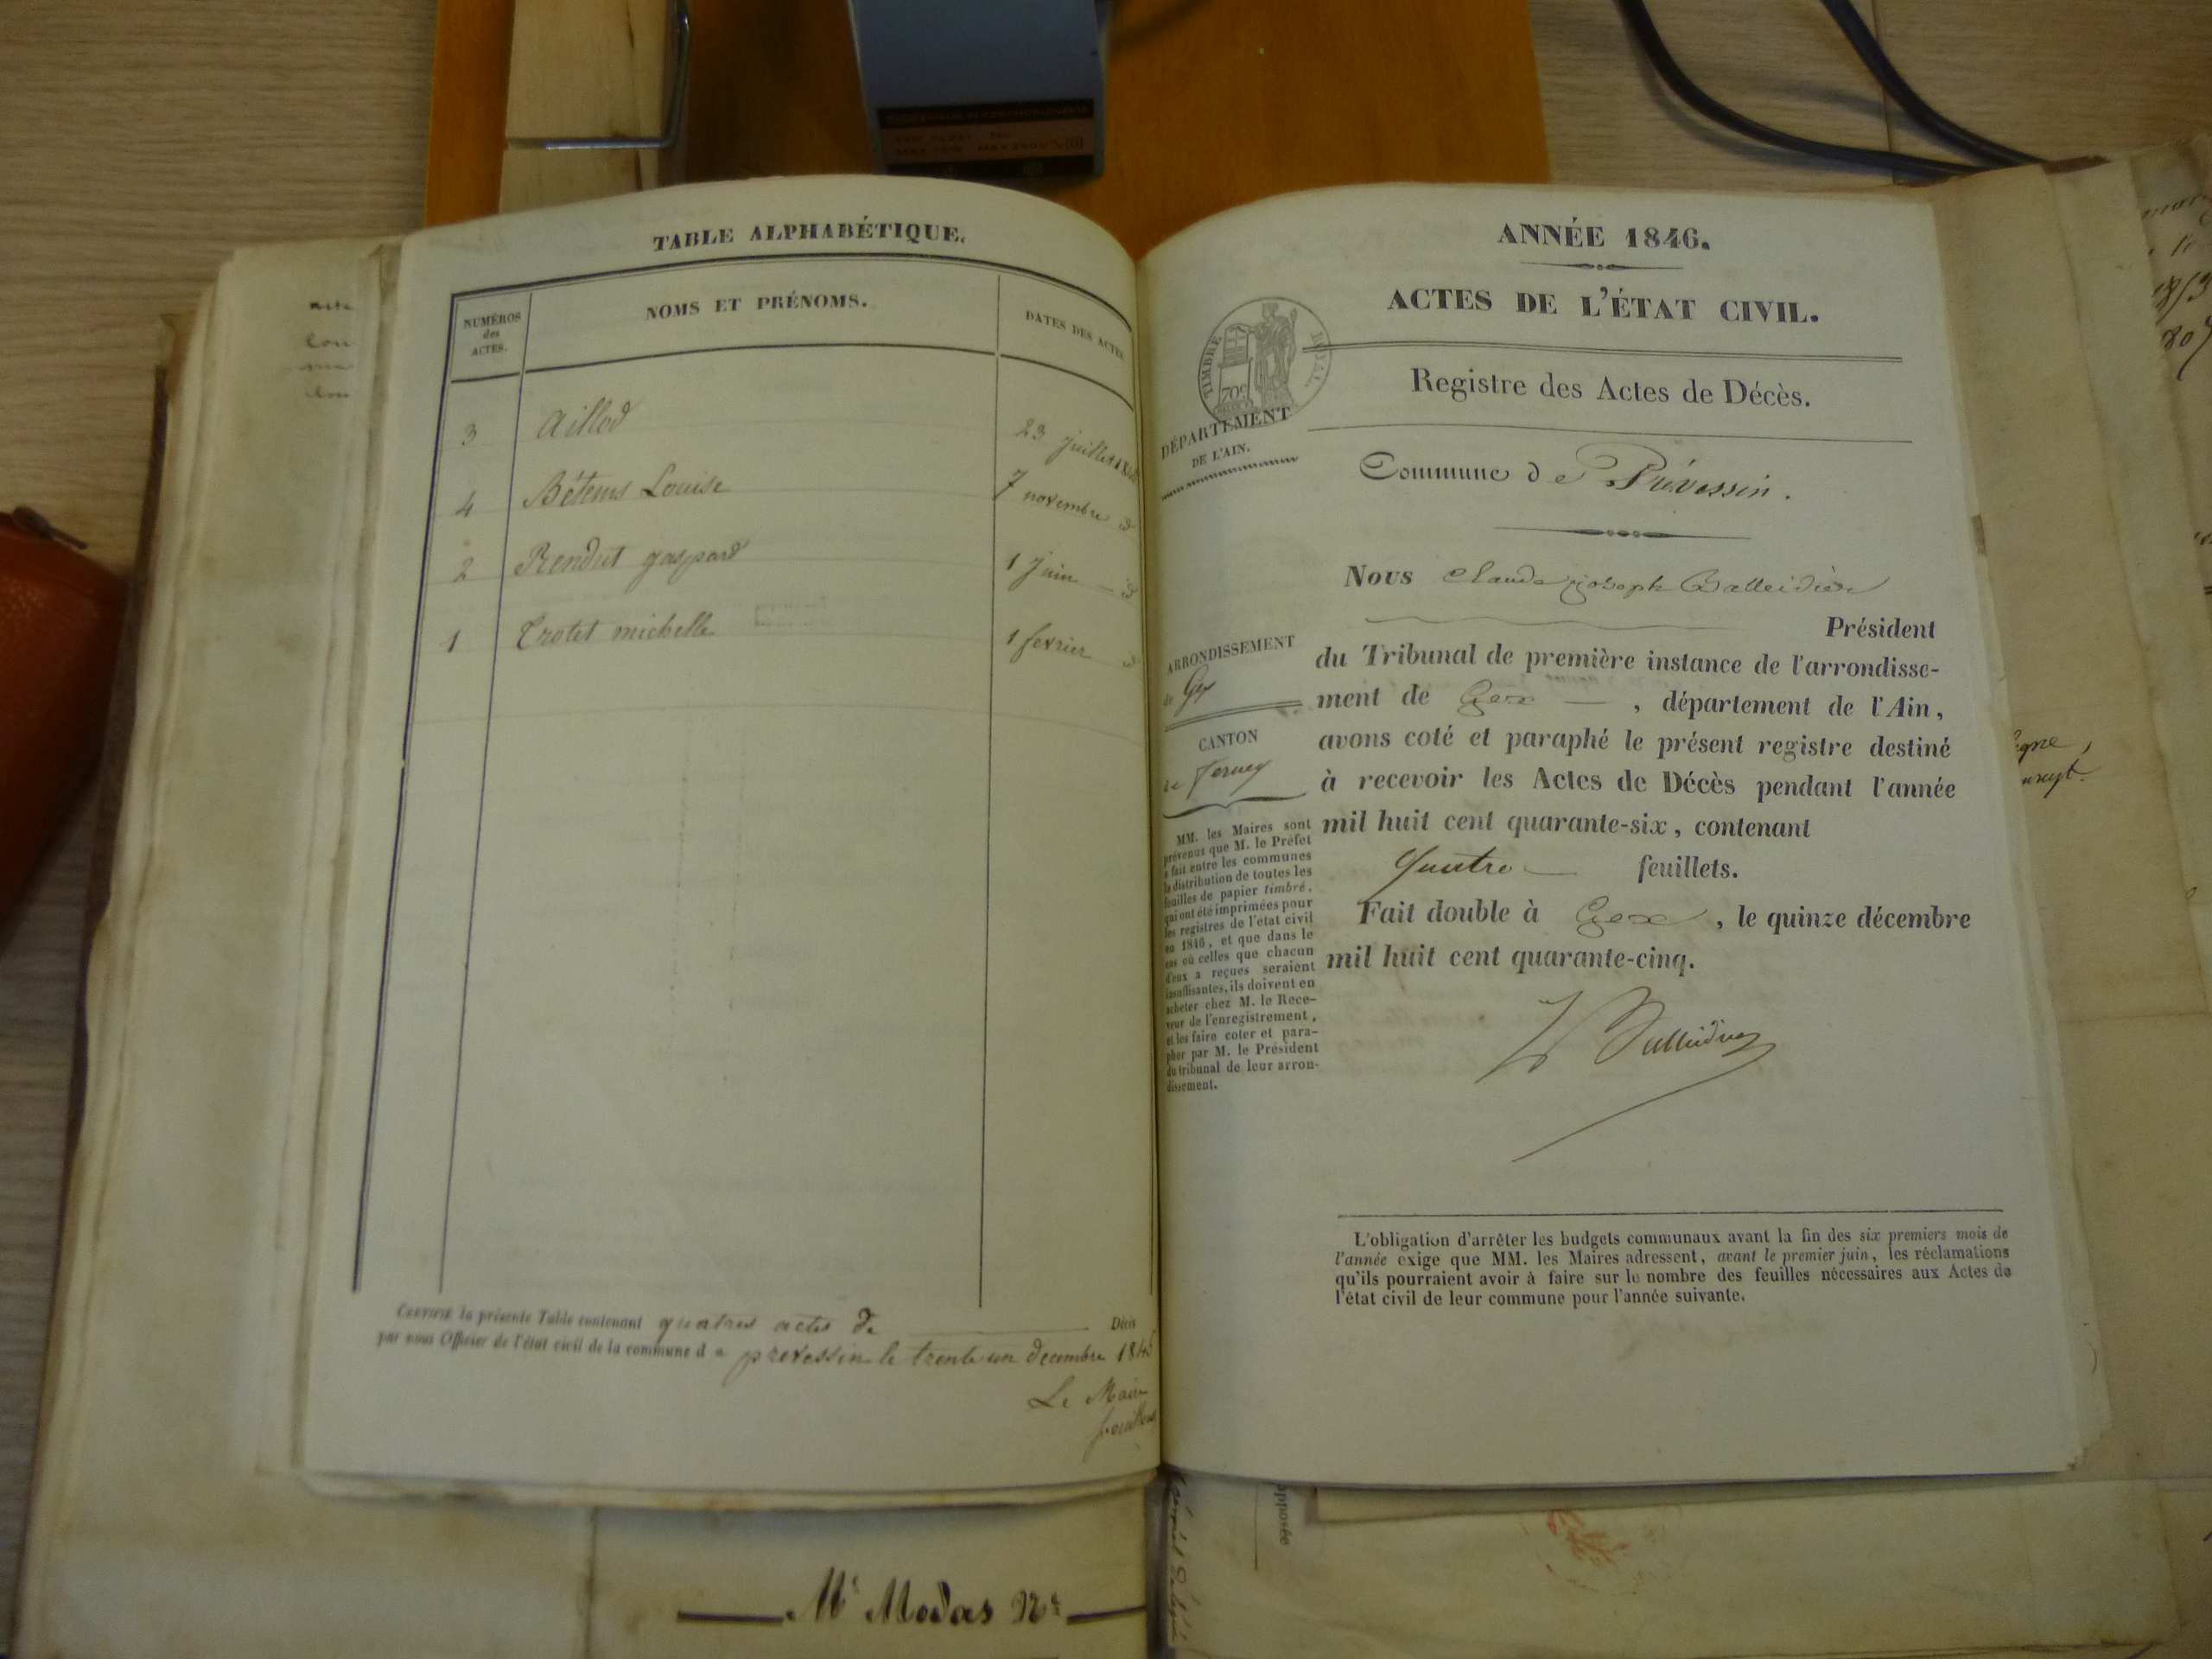 TABLE ALPHABÉTIQUE.
NUMÉROS
des
ACTES.
NOMS ET PRÉNOMS.
DATES DES ACTES
3 Aillod 23 juillet
4 Bétems Louise 7 novembre d
2 Rendut gaspard 1 Juin d
1 Trotet michelle 1 fevrier d
CERTIFIÉ la présente Table contenant quatres actes de Décès
par nous Officier de l'état civil de la commune d e prevessin le trente un decembre 1845
Le Maire
ANNÉE 1846.
ACTES DE L'ÉTAT CIVIL.
TIMBRE ROYAL
70c
DÉPARTEMENT
DE L'AIN.
Registre des Actes de Décès.
Commune de Prévessin.
Nous Claude joseph Balleidier
Président
du Tribunal de première instance de l'arrondisse-
ment de Gex , département de l'Ain,
avons coté et paraphé le présent registre destiné
à recevoir les Actes de Décès pendant l'année
mil huit cent quarante-six, contenant
Quatre feuillets.
Fait double à Gex , le quinze décembre
mil huit cent quarante-cinq.
Balleidier
ARRONDISSEMENT
de Gex
CANTON
de Ferney
MM. les Maires sont
prévenus que M. le Préfet
a fait entre les communes
la distribution de toutes les
feuilles de papier timbré,
qui ont été imprimées pour
les registres de l'état civil
en 1846, et que dans le
cas où celles que chacun
d'eux a reçues seraient
insuffisantes, ils doivent en
acheter chez M. le Rece-
veur de l'enregistrement,
et les faire coter et para-
pher par M. le Président
du tribunal de leur arron-
dissement.
L'obligation d'arrêter les budgets communaux avant la fin des six premiers mois de
l'année exige que MM. les Maires adressent, avant le premier juin, les réclamations
qu'ils pourraient avoir à faire sur le nombre des feuilles nécessaires aux Actes de
l'état civil de leur commune pour l'année suivante.
apposée
Mr Modas